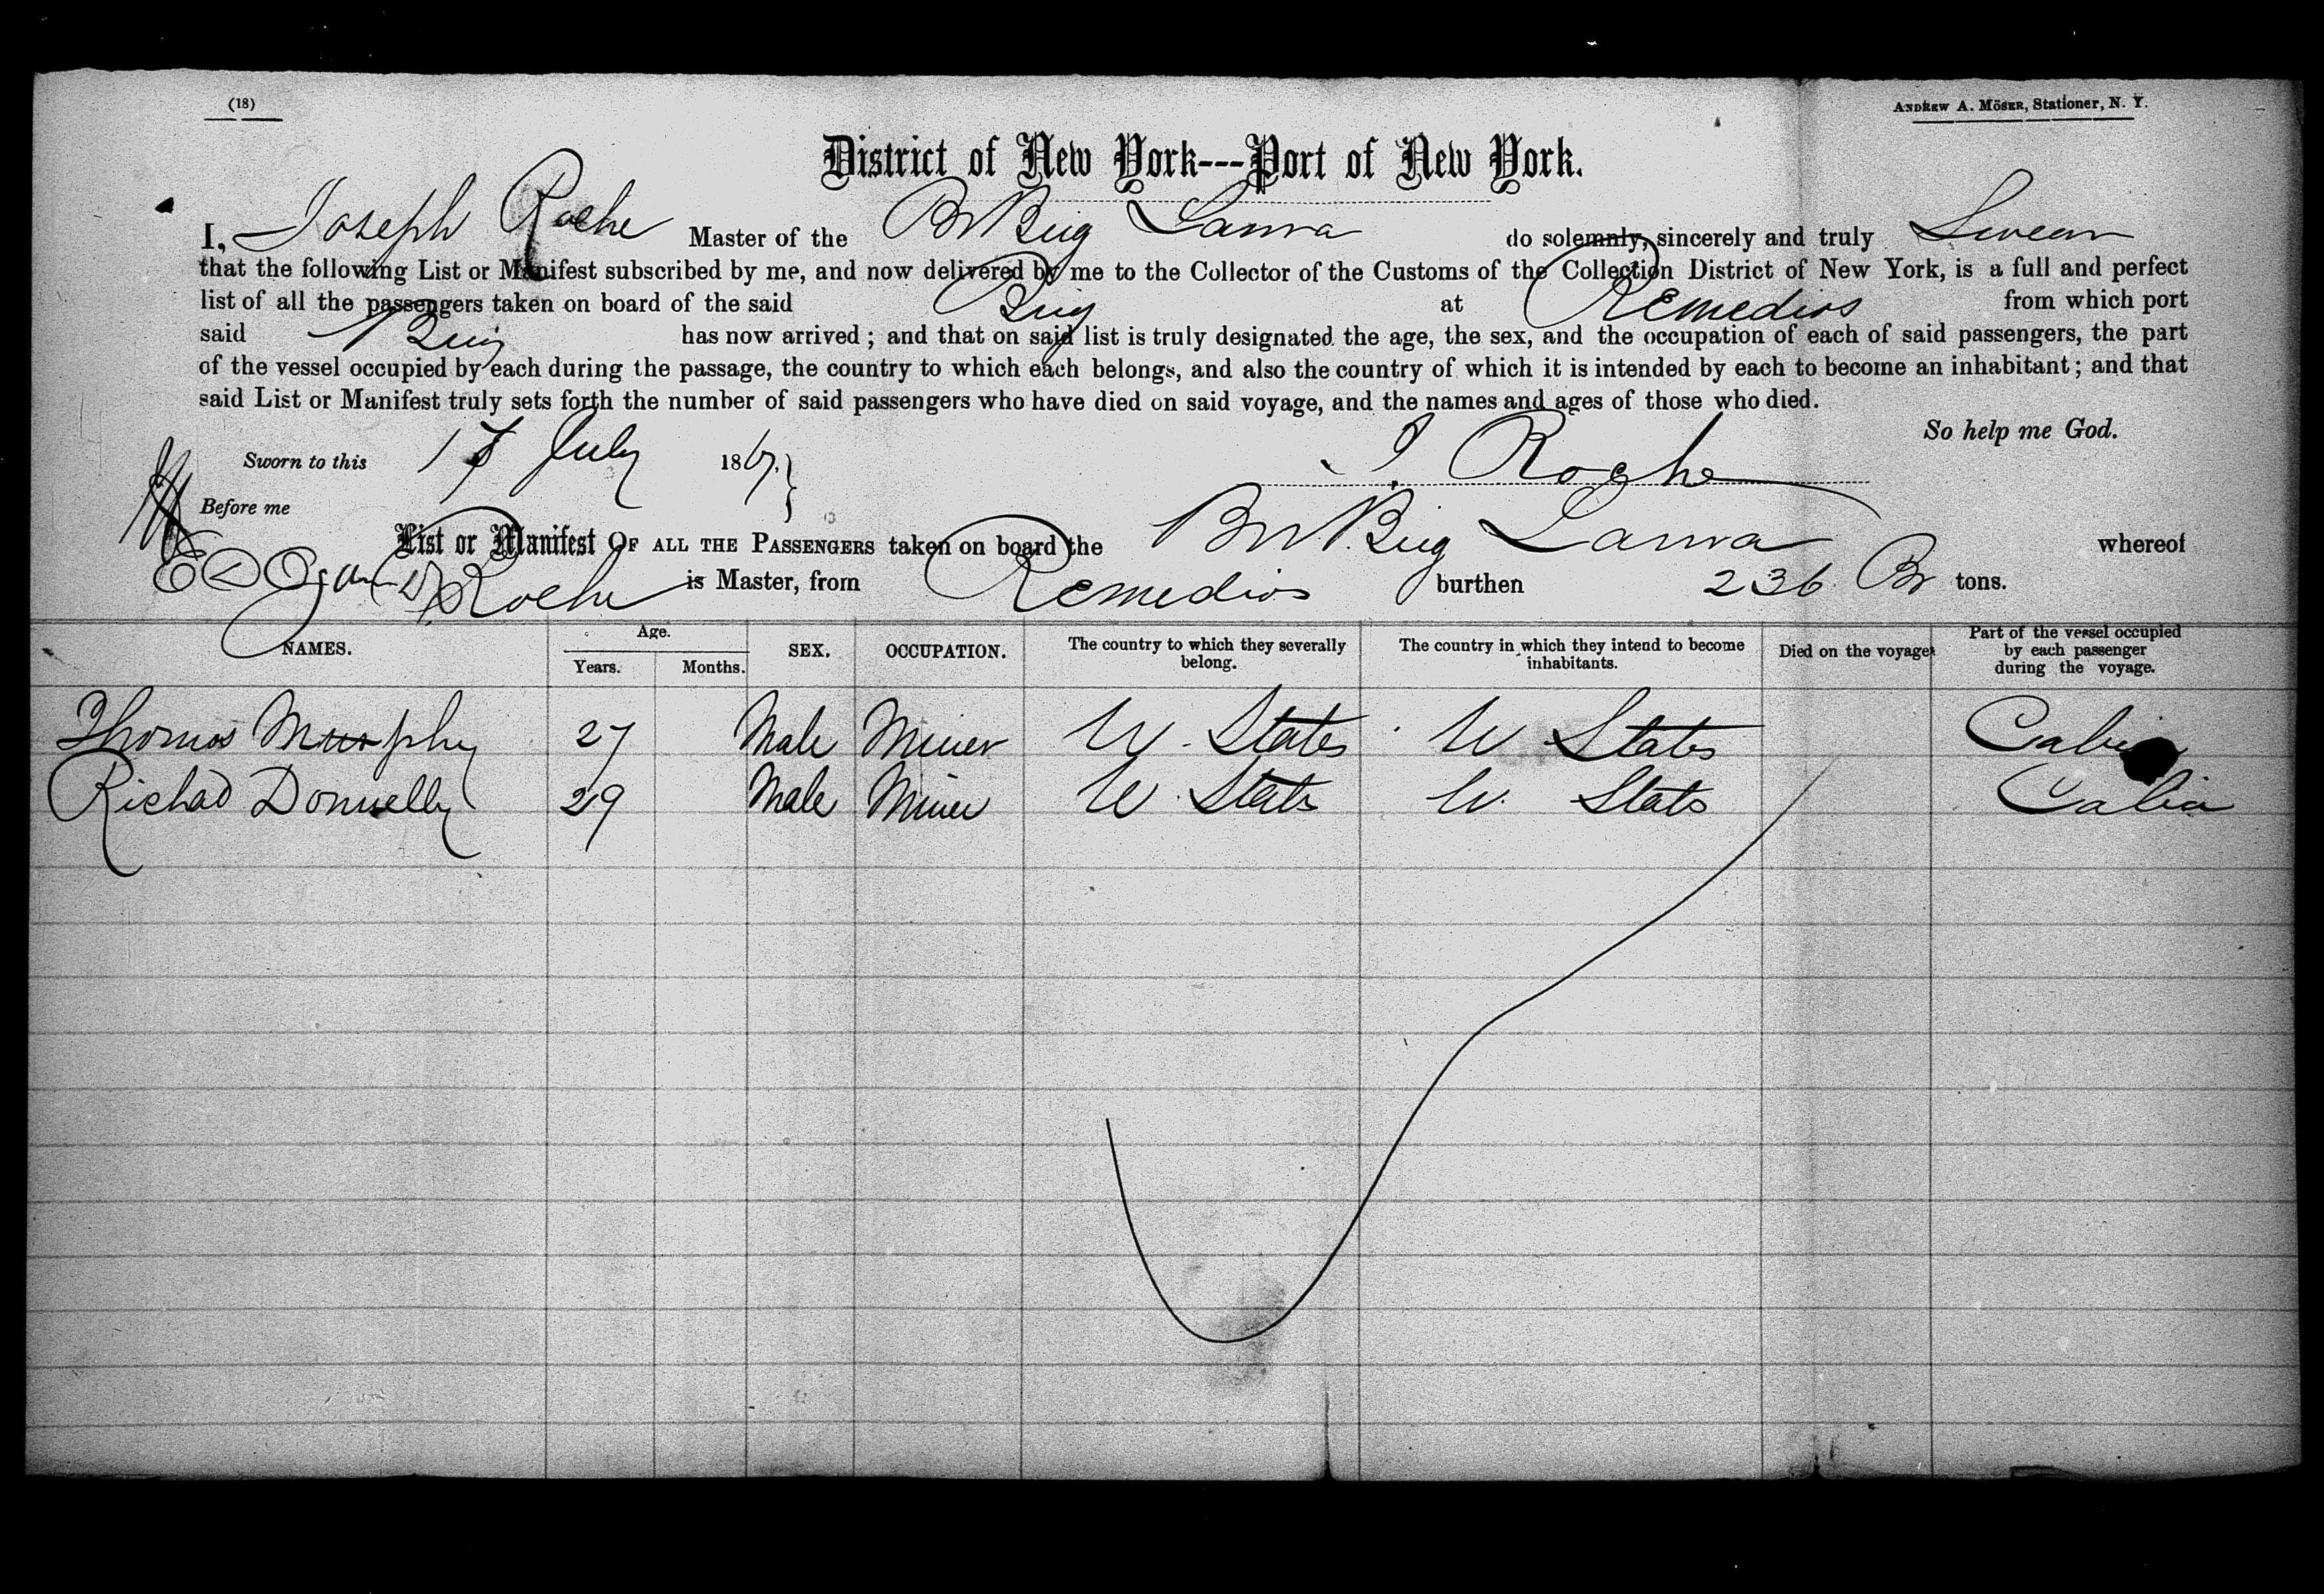 (18)
ANDREW A. MÖSER, Stationer, N. Y.
District of New York---Port of New York.
I, Joseph Roche Master of the Br Brig Laura do solemnly, sincerely and truly Swear
that the following List or Manifest subscribed by me, and now delivered by me to the Collector of the Customs of the Collection District of New York, is a full and perfect
list of all the passengers taken on board of the said Brig at Remedios from which port
said Brig has now arrived; and that on said list is truly designated the age, the sex, and the occupation of each of said passengers, the part
of the vessel occupied by each during the passage, the country to which each belongs, and also the country of which it is intended by each to become an inhabitant; and that
said List or Manifest truly sets forth the number of said passengers who have died on said voyage, and the names and ages of those who died.
So help me God.
Sworn to this 17 July 1867. J Roche
Before me
List or Manifest OF ALL THE PASSENGERS taken on board the Br. Brig Laura whereof
Roche is Master, from Remedios burthen 236 Br tons.
NAMES. Age. Years. Months. SEX. OCCUPATION. The country to which they severally belong. The country in which they intend to become inhabitants. Died on the voyage. Part of the vessel occupied by each passenger during the voyage.
Thomas Murphy 27 Male Miner U. States U States Cabin
Richad Donnelly 29 Male Miner U. Stats U. Stats Cabin